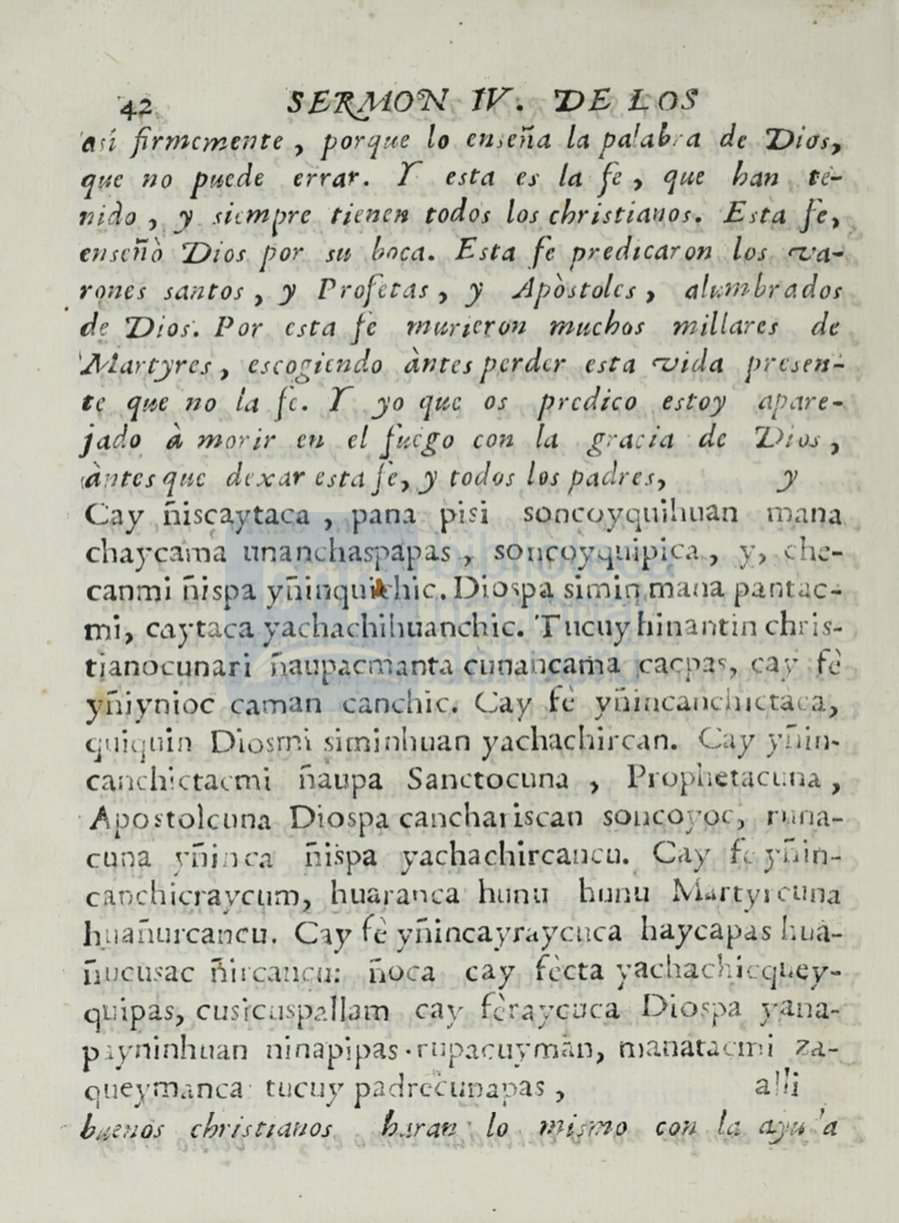 42 SERMON IV. DE LOS
así firmemente , porque lo enseña la palabra de Dios,
que no puede errar. Y esta es la fe , que han te-
nido , y siempre tienen todos los christianos. Esta fe,
enseñò Dios por su boca. Esta fe predicaron los va-
rones santos , y Profetas , y Apòstoles , alumbrados
de Dios. Por esta fe murieron muchos millares de
Martyres , escogiendo àntes perder esta vida presen-
te que no la fe. Y yo que os predico estoy apare-
jado à morir en el fuego con la gracia de Dios ,
àntes que dexar esta fe, y todos los padres, y
Cay ñiscaytaca , pana pisi soncoyquihuan mana
chaycama unanchaspapas , soncoyquipica , y, che-
canmi ñispa yñinquichic. Diospa simin mana pantac-
mi, caytaca yachachihuanchic. Tucuy hinantin chris-
tianocunari ñaupacmanta cunancama cacpas, cay fè
yñiynioc caman canchic. Cay fè yñincanchictaca,
quiquin Diosmi siminhuan yachachircan. Cay yñin-
canchictacmi ñaupa Sanctocuna , Prophetacuna ,
Apostolcuna Diospa canchariscan soncoyoc, runa-
cuna yñinca ñispa yachachircancu. Cay fe yñin-
canchicraycum, huaranca hunu hunu Martyrcuna
huañurcancu. Cay fè yñincayraycuca haycapas hua-
ñucusac ñircancu: ñoca cay fècta yachachicquey-
quipas, cusicuspallam cay fèraycuca Diospa yana-
payninhuan ninapipas rupacuymàn, manatacmi za-
queymanca tucuy padrecunapas , alli
buenos christianos haran lo mismo con la ayuda